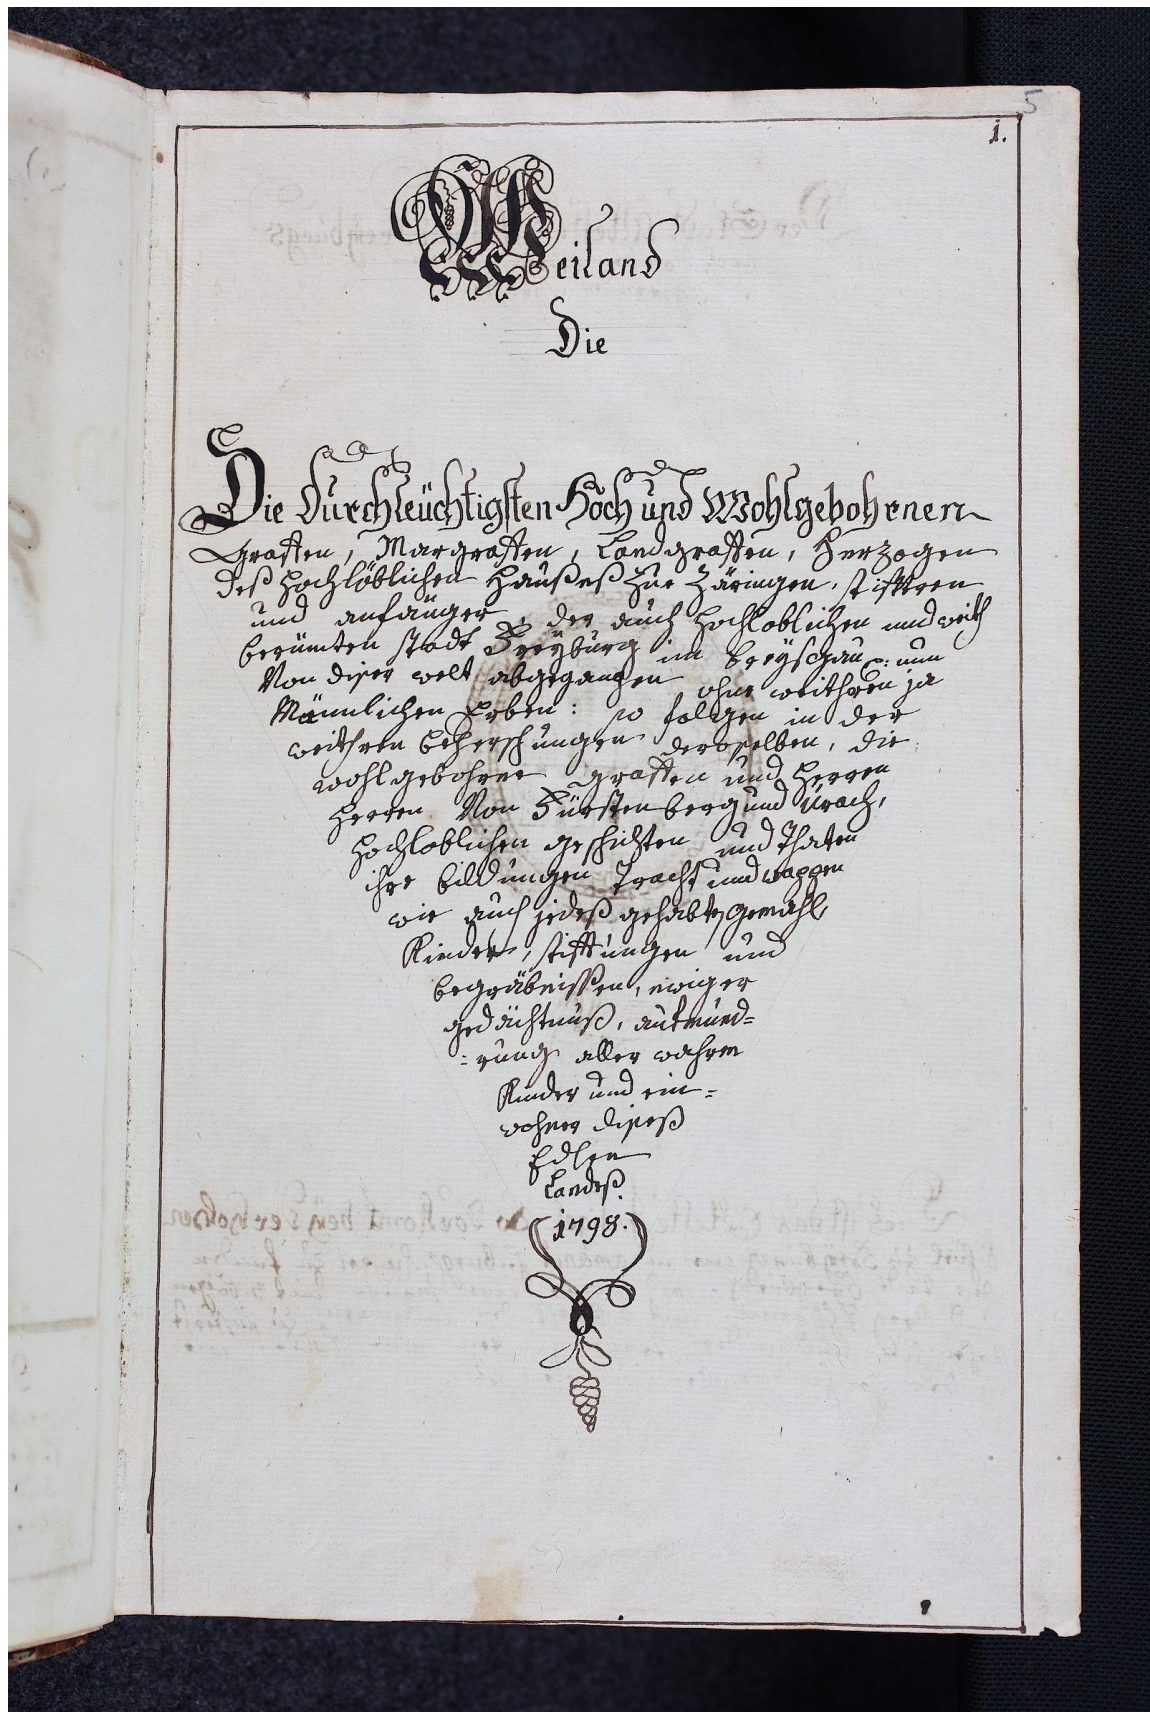 5
1.
Weiland
Die
Die Durchleüchtigsten Hoch und Wohlgebohrnen
Graffen, Margraffen, Landgraffen, Herzogen
deß hochlöblichen Haußeß zue Zäringen, stiffteren
und anfänger, der auch hochloblichen und weith
berümten stadt Freÿburg im breÿsgau: nun
Von diser welt abgegangen ohne weithren ja
Männlichen Erben: so folgen in der
weithren beherschungen derselben, die
wohlgebohrne graffen und Herren
Herren Von Fürstenberg und Urach,
hochloblichen geschichten und Thaten
ihre bildungen Tracht und wappen
wie auch jedeß gehabte gemahl,
Kinder, stifftungen und
begräbnissen, ewiger
gedächtnuß, aufmund=
=rung aller wahren
Kinder und ein=
wohner diseß
Edlen
Landeß.
(1798.)